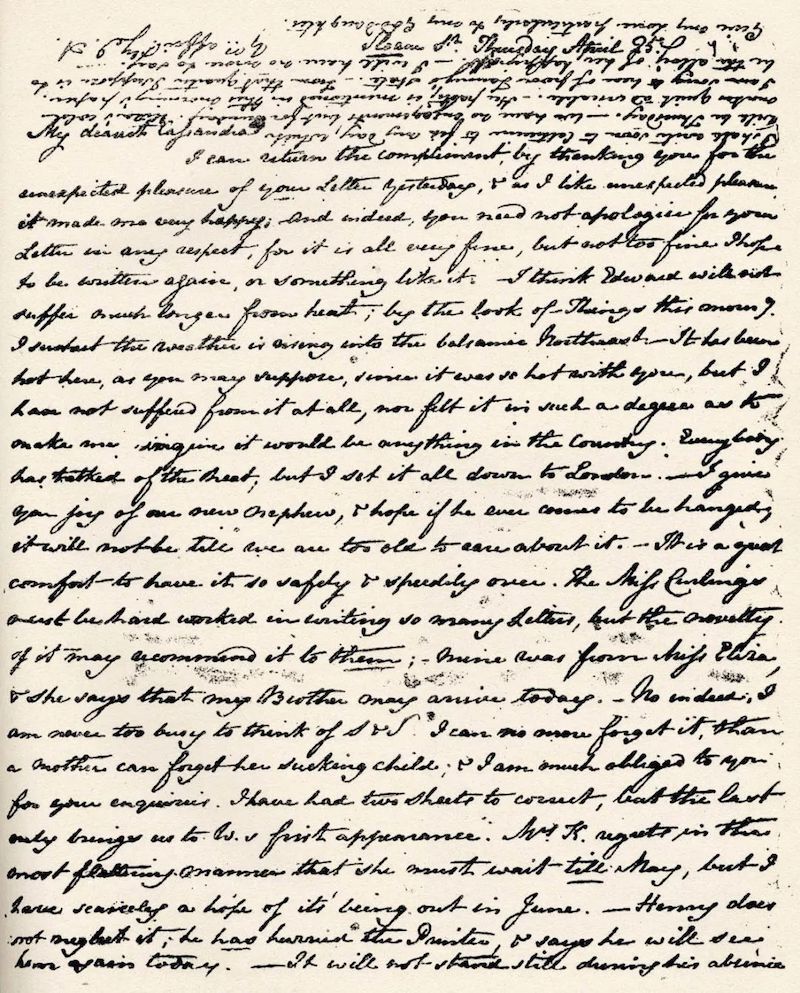 Sloane St. Thursday April 25.
My dearest Cassandra
I can return the compliment by thanking you for the
unexpected pleasure of your Letter yesterday, & as I like unexpected pleasure,
it made me very happy; And indeed, you need not apologise for your
Letter in any respect, for it is all very fine, but not too fine I hope
to be written again, or something like it. — I think Edward will not
suffer much longer from heat; by the look of Things this morng
I suspect the weather is rising into the balsamic Northeast. — It has been
hot here, as you may suppose, since it was so hot with you, but I
have not suffered from it at all, nor felt it in such a degree as to
make me imagine it would be anything in the Country. Everybody
has talked of the heat, but I set it all down to London. — I give
you joy of our new nephew, & hope if he ever comes to be hanged,
it will not be till we are too old to care about it. — It is a great
comfort to have it so safely & speedily over. The Miss Curlings
must be hard worked in writing so many Letters, but the novelty
of it may recommend it to them; — mine was from Miss Eliza,
& she says that my Brother may arrive today. — No indeed, I
am never too busy to think of S&S. I can no more forget it, than
a mother can forget her sucking child; & I am much obliged to you
for your enquiries. I have had two sheets to correct, but the last
only brings us to W.s first appearance. Mrs K. regrets in the
most flattering manner that she must wait till May, but I
have scarcely a hope of its being out in June. — Henry does
not neglect it; he has hurried the Printer, & says he will see
him again today. — It will not stand still during his absence
I shall write soon to Catherine to fix my day, which
will be Thursday. — We have no engagements but for Sunday. Eliza's cold
makes quiet advisable. — Her party is mentioned in this morning's paper. —
I am sorry to hear of poor Fanny's state. — From that quarter I suppose is to
be the alloy of her happiness. — I will have no more to say. —
Yrs affecly J. A.
Give my Love particularly to my God Daughter.